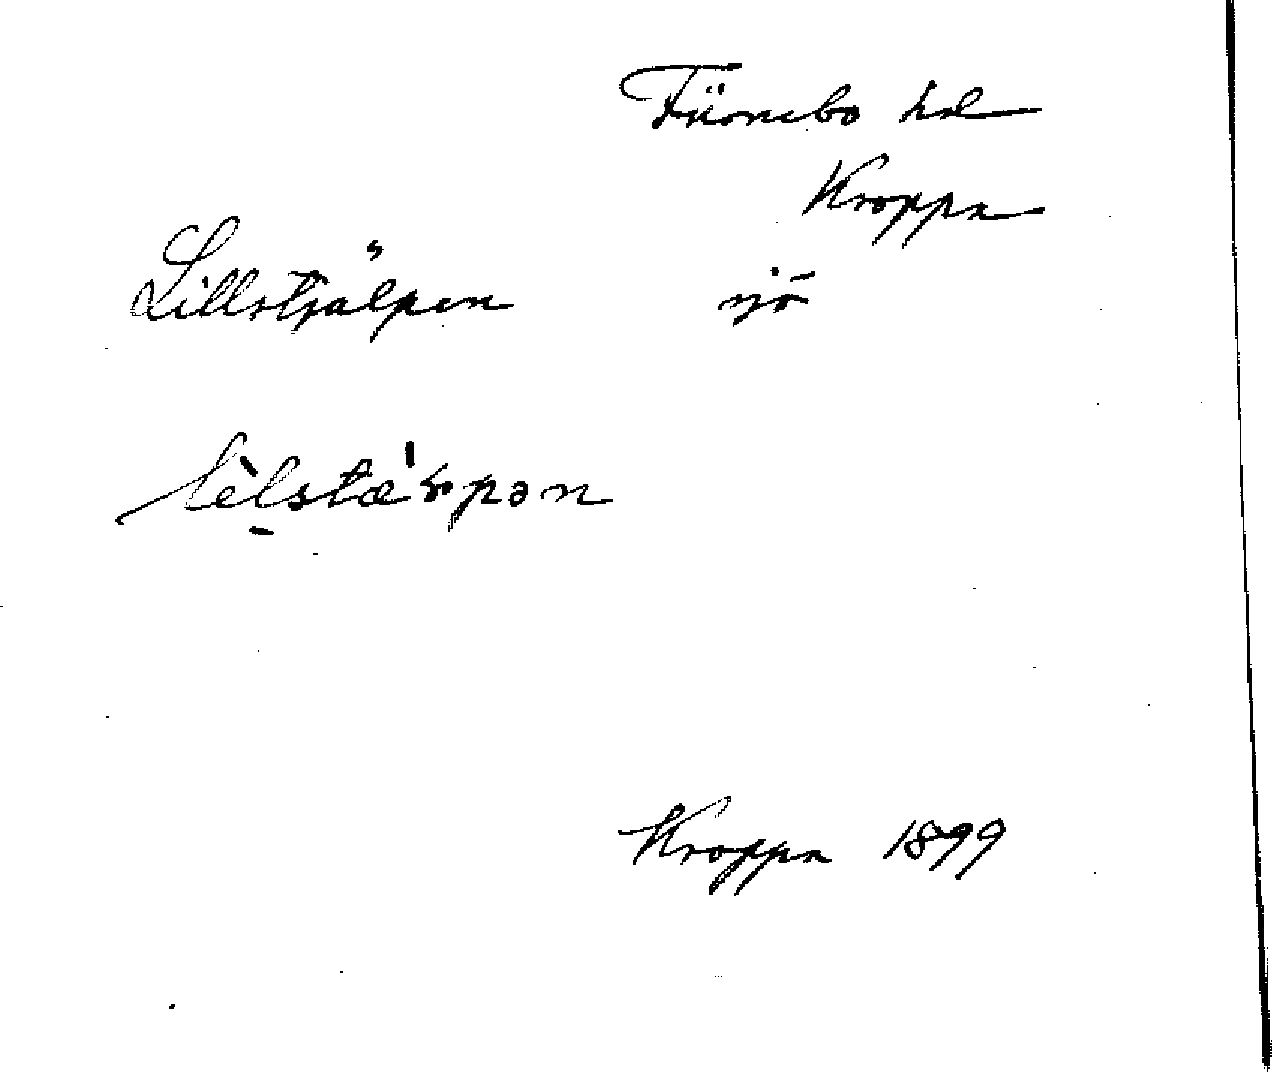 Färnebo hd
Kroppa
Lillstjälpen sjö
Kroppa 1899